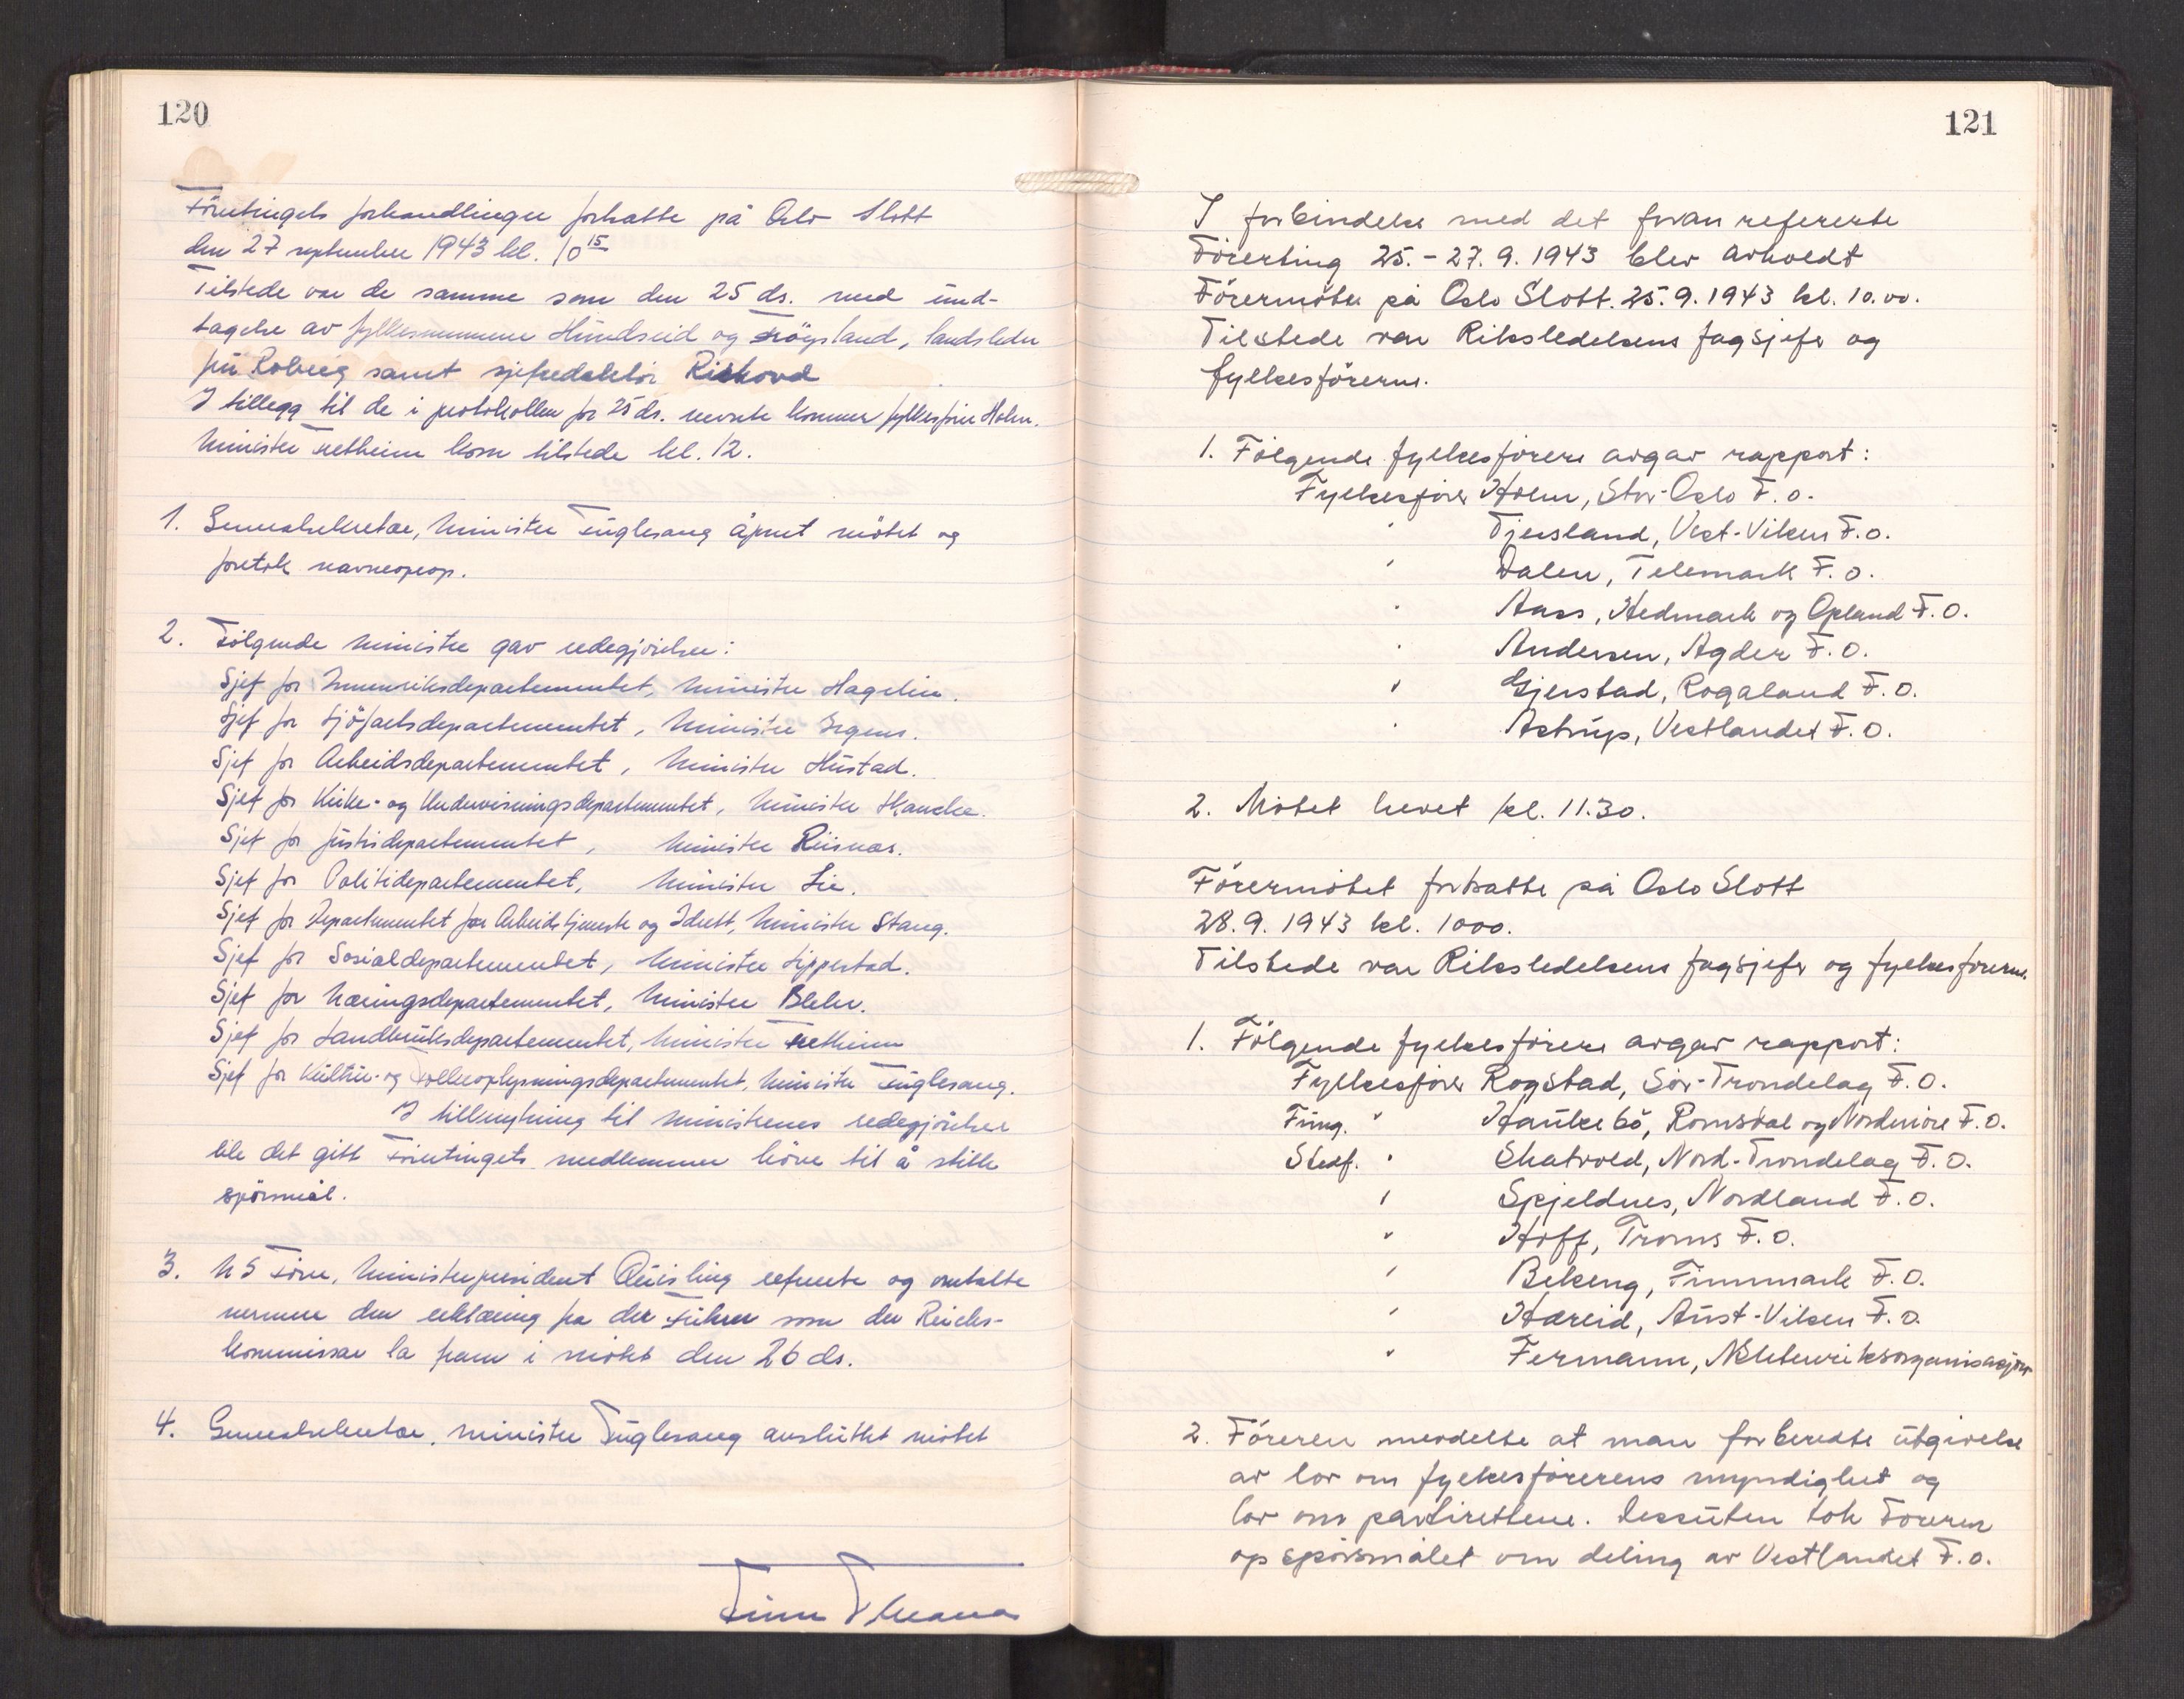 120
Förertingets forhandlinger fortsatte på Oslo Slott
den 27 september 1943 kl. 10 15
Tilstede var de samme som den 25 ds. med und-
tagelse av fylkesmennene Hundseid og Frögsland, landsleder
fru Roberg samt sjefredaktör Rishovd
I tillegg til de i protokollen for 25 ds. nevnte kommer fylkesförer Holm.
Minister Fretheim kom tilstede kl. 12.
1. Generalsekretær, Minister Fuglesang åpnet mötet og
foretok navneoprop.
2. Fölgende ministre gav redegjörelser:
Sjef for Innenriksdepartementet, Minister Hagelin.
Sjef for Sjöfartsdepartementet, Minister Irgens.
Sjef for Arbeidsdepartementet, Minister Hustad.
Sjef for Kirke- og Undervisningsdepartementet, Minister Skancke.
Sjef for Justisdepartementet, Minister Riisnæs.
Sjef for Politidepartementet, Minister Lie.
Sjef for Departementet for Arbeidstjeneste og Idrett, Minister Stang.
Sjef for Sosialdepartementet, Minister Lippestad.
Sjef for Næringsdepartementet, Minister Blehr.
Sjef for Landbruksdepartementet, Minister Fretheim
Sjef for Kultur- og Folkeoplysningsdepartementet, Minister Fuglesang.
I tilknytning til ministrenes redegjörelser
ble det gitt Förertingets medlemmer höve til å stille
spörsmål.
3. NS Förer, Ministerpresident Quisling refererte og omtalte
nermere den erklæring fra der Führer som der Reichs-
kommissar la fram i mötet den 26 ds.
4. Generalsekretær, minister Fuglesang avsluttet mötet
Finn Thrana
121
I forbindelse med det foran refererte
Förerting 25.-27.9.1943 blev avholdt
Förermöte på Oslo Slott. 25.9.1943 kl. 10.00.
Tilstede var Riksledelsens fagsjefer og
fylkesförerne.
1. Fölgende fylkesförere avgav rapport:
Fylkesförer Holm, Stor-Oslo F.O.
" Tjersland, Vest-Viken F.O.
" Dalen, Telemark F.O.
" Aass, Hedmark og Opland F.O.
" Andersen, Agder F.O.
" Gjerstad, Rogaland F.O.
" Astrup, Vestlandet F.O.
2. Mötet hevet kl. 11.30.
Förermötet fortsatte på Oslo Slott
28.9.1943 kl. 1000.
Tilstede var Riksledelsens fagsjefer og fylkesförerne.
1. Fölgende fylkesförere avgav rapport:
Fylkesförer Rogstad, Sör-Tröndelag F.O.
Fung. " Haukebö, Romsdal og Nordmöre F.O.
Stedf. " Skatvold, Nord-Tröndelag F.O.
" Spjeldnes, Nordland F.O.
" Hoff, Troms F.O.
" Bekeng, Finnmark F.O.
" Hareid, Aust-Viken F.O.
" Fermann, NS Utenriksorganisasjon
2. Föreren meddelte at man forberedte utgivelse
av lov om fylkesförerens myndighet og
lov om partirettene. Dessuten tok Föreren
op spörsmålet om deling av Vestlandet F.O.